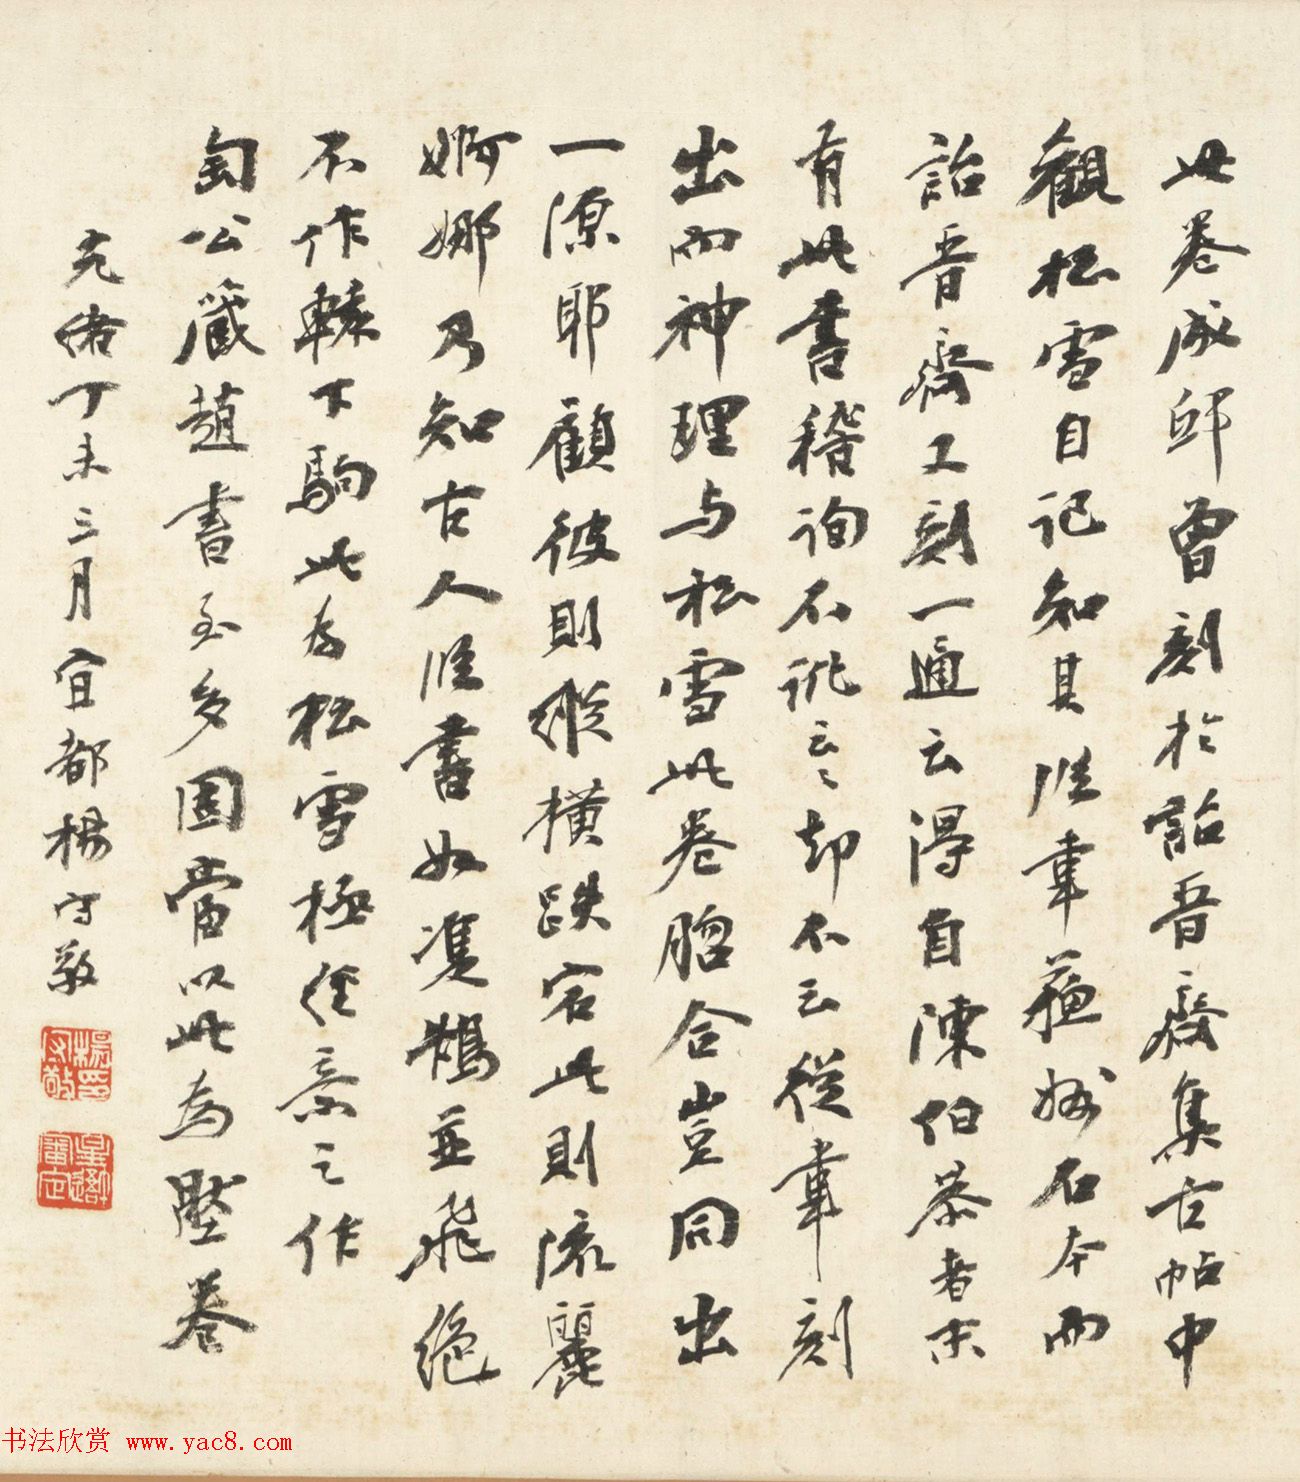 此卷成邸曾刻於詒晉齋集古帖中
觀松雪自記知其從韋蘇州石本而
詒晉齋又刻一通云得自陳伯恭者末
有此書稽詢不訛云云却不云從韋刻
出而神理与松雪此卷脗合豈同出
一源耶顧彼則縱橫跌宕此則流麗
婀娜乃知古人臨書如雙鵠並飛絕
不作轅下駒此為松雪極經意之作
匋公藏趙書至多固當以此為壓卷
光緒丁未三月宜都楊守敬
楊印守敬
星吾審定
书法欣赏 www.yac8.com